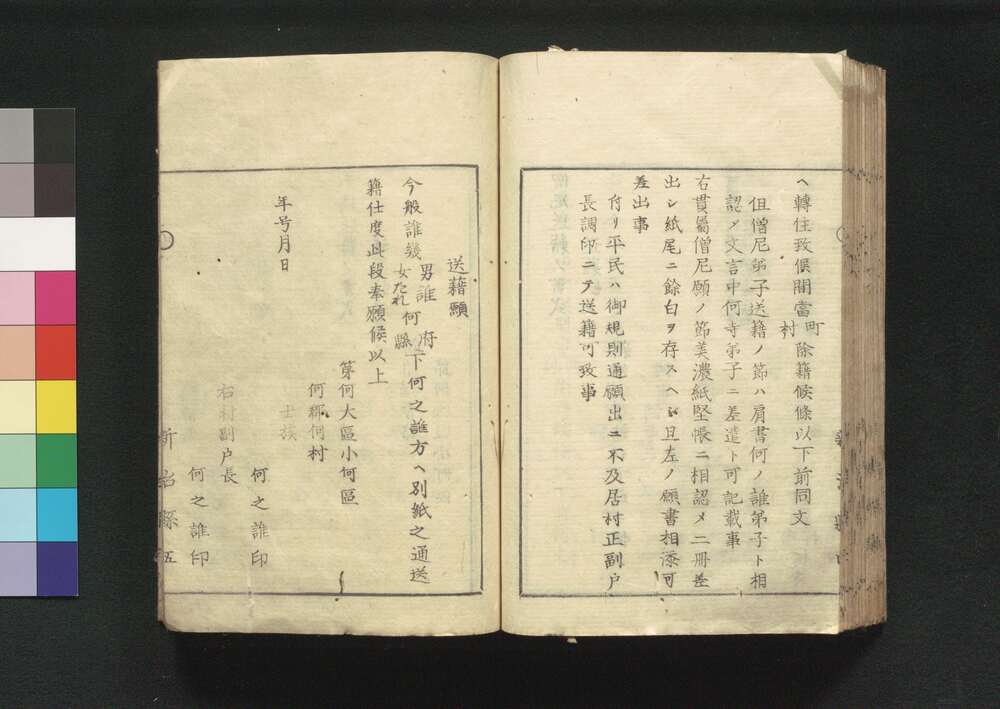 ヘ轉住致候間當町村除籍候條以下前同文
但僧尼弟子送籍ノ節ハ肩書何ノ誰弟子ト相
認メ文言中何寺弟子ニ差遣ト可記載事
右貫屬僧尼願ノ節美濃紙竪帳ニ相認メ二冊差
出シ紙尾ニ餘白ヲ存スヘシ且左ノ願書相添可
差出事
付リ平民ハ御規則通願出ニ不及居村正副户
長調印ニテ送籍可致事
送籍願
今般誰幾男誰女たれ何府縣下何之誰方ヘ別紙之通送
籍仕度此段奉願候以上
第何大區小何區
何郷何村
士族
年号月日
何之誰印
右村副户長
何之誰印
新治縣 五